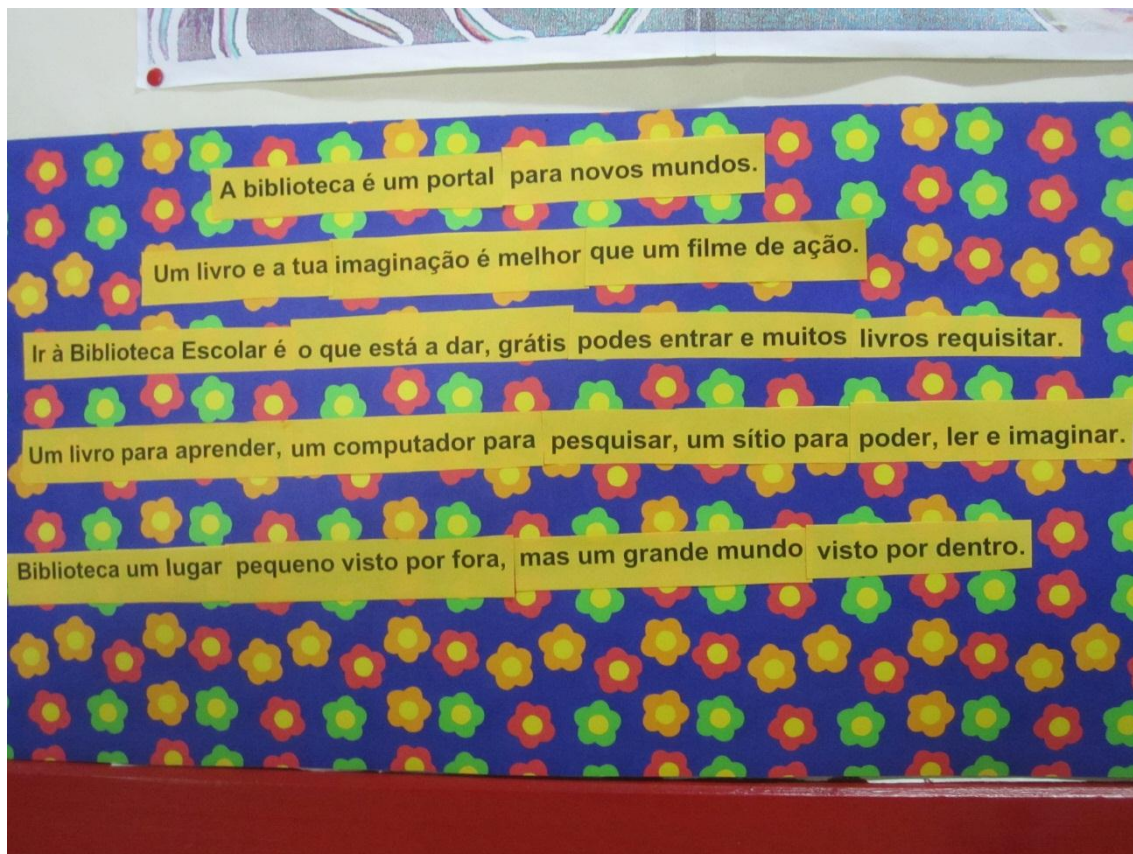 A biblioteca é um portal para novos mundos.
Um livro e a tua imaginação é melhor que um filme de ação.
Ir à Biblioteca Escolar é o que está a dar, grátis podes entrar e muitos livros requisitar.
Um livro para aprender, um computador para pesquisar, um sítio para poder, ler e imaginar.
Biblioteca um lugar pequeno visto por fora, mas um grande mundo visto por dentro.